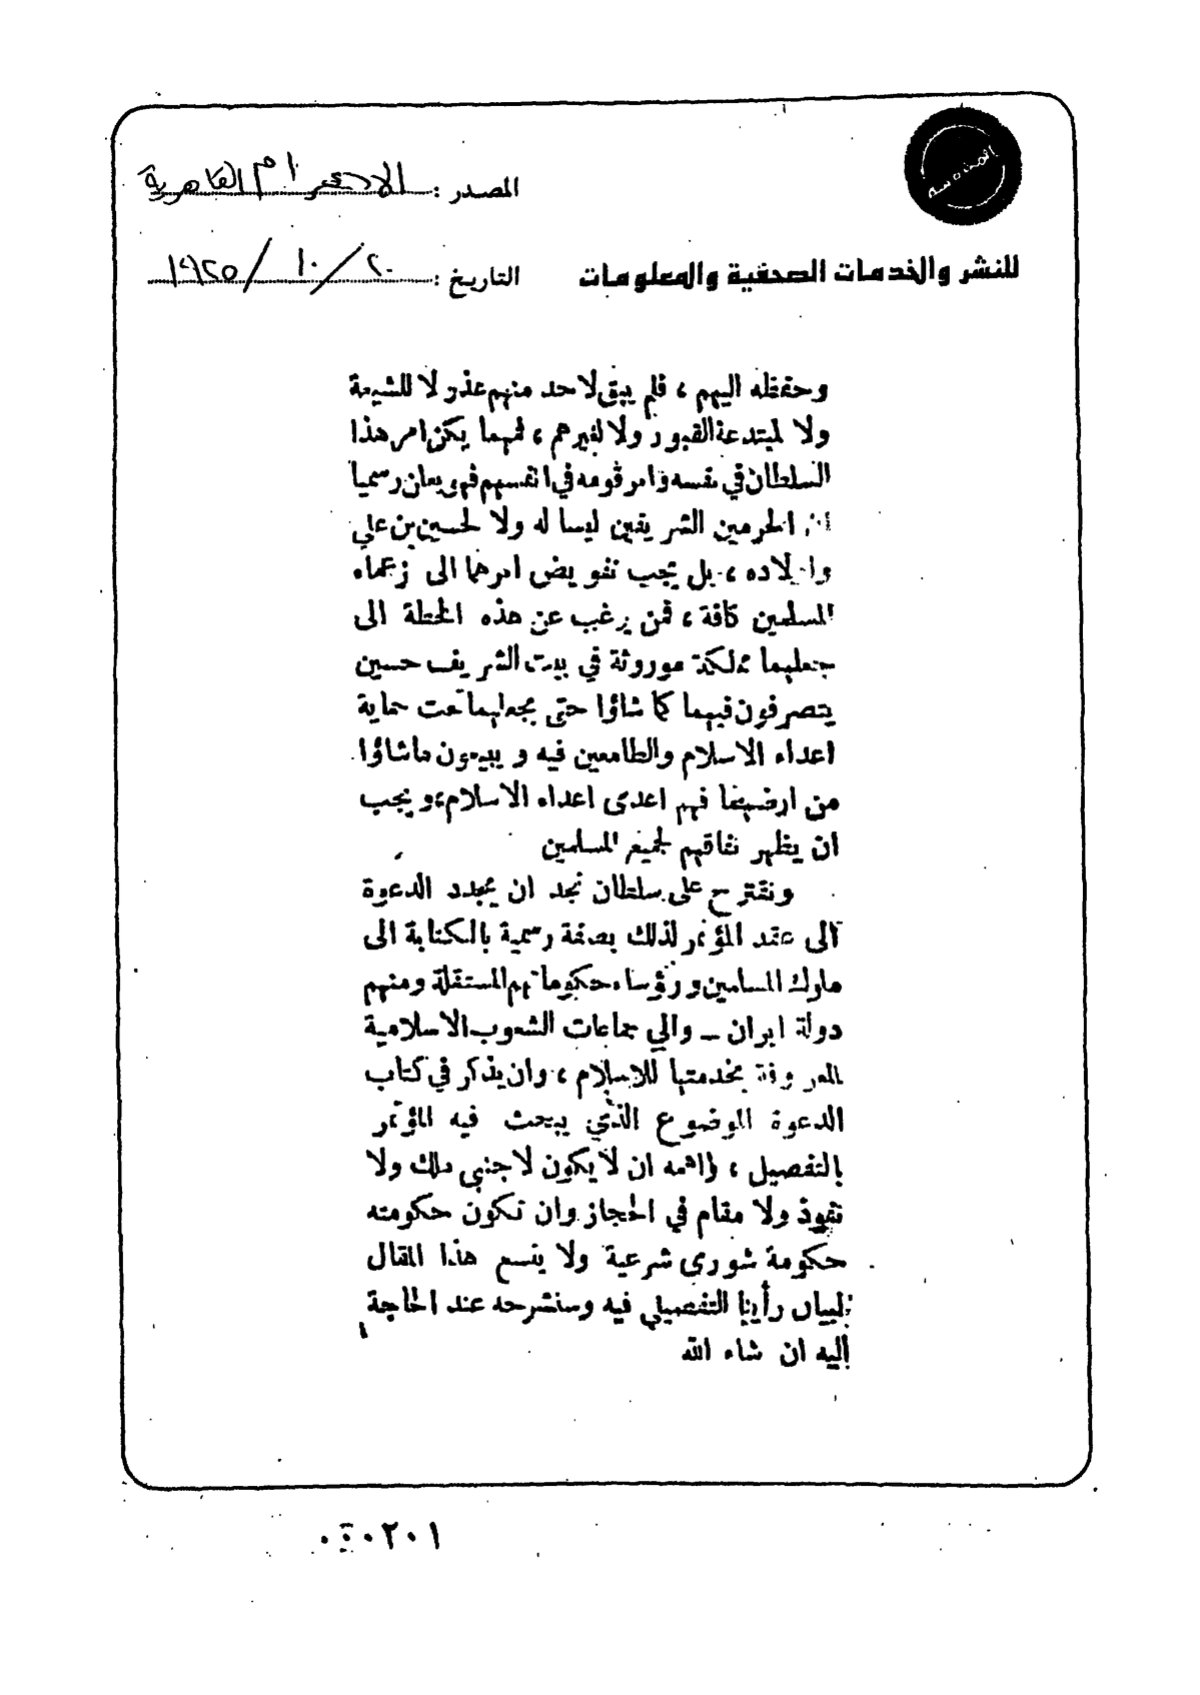 المصدر : الاهرام القاهرية
التاريخ : ٢٠ / ١٠ / ١٩٢٥
للنشر والخدمات الصحفية والمعلومات
وحفظه اليهم ، فلم يبق لاحد منهم عذر لا للشيعة
ولا لمبتدعة القبور ولا لغيرهم ، فمهما يكن امر هذا
السلطان في نفسه وامر قومه في انفسهم فهو يعلن رسميا
ان الحرمين الشريفين ليسا له ولا لحسين بن علي
واولاده ، بل يجب تفويض امرهما الى زعماء
المسلمين كافة ، فمن يرغب عن هذه الخطة الى
جعلهما مملكة موروثة في بيت الشريف حسين
يتصرفون فيهما كما شاؤا حتى بجعلهما تحت حماية
اعداء الاسلام والطامعين فيه و يبيعون ماشاؤا
من ارضهما فهم اعدى اعداء الاسلام ، ويجب
ان يظهر نفاقهم لجميع المسلمين
ونقترح على سلطان نجد ان يجدد الدعوة
الى عقد المؤتمر لذلك بصفة رسمية بالكتابة الى
ملوك المسلمين ورؤساء حكوماتهم المستقلة ومنهم
دولة ايران – والي جماعات الشعوب الاسلامية
المعروفة بخدمتها للاسلام ، وان يذكر في كتاب
الدعوة الموضوع الذي يبحث فيه المؤتمر
بالتفصيل ، واهمه ان لا يكون لاجنبي ملك ولا
نفوذ ولا مقام في الحجاز وان تكون حكومته
حكومة شورى شرعية ولا يتسع هذا المقال
لبيان رأينا التفصيلي فيه وسنشرحه عند الحاجة
إليه ان شاء الله